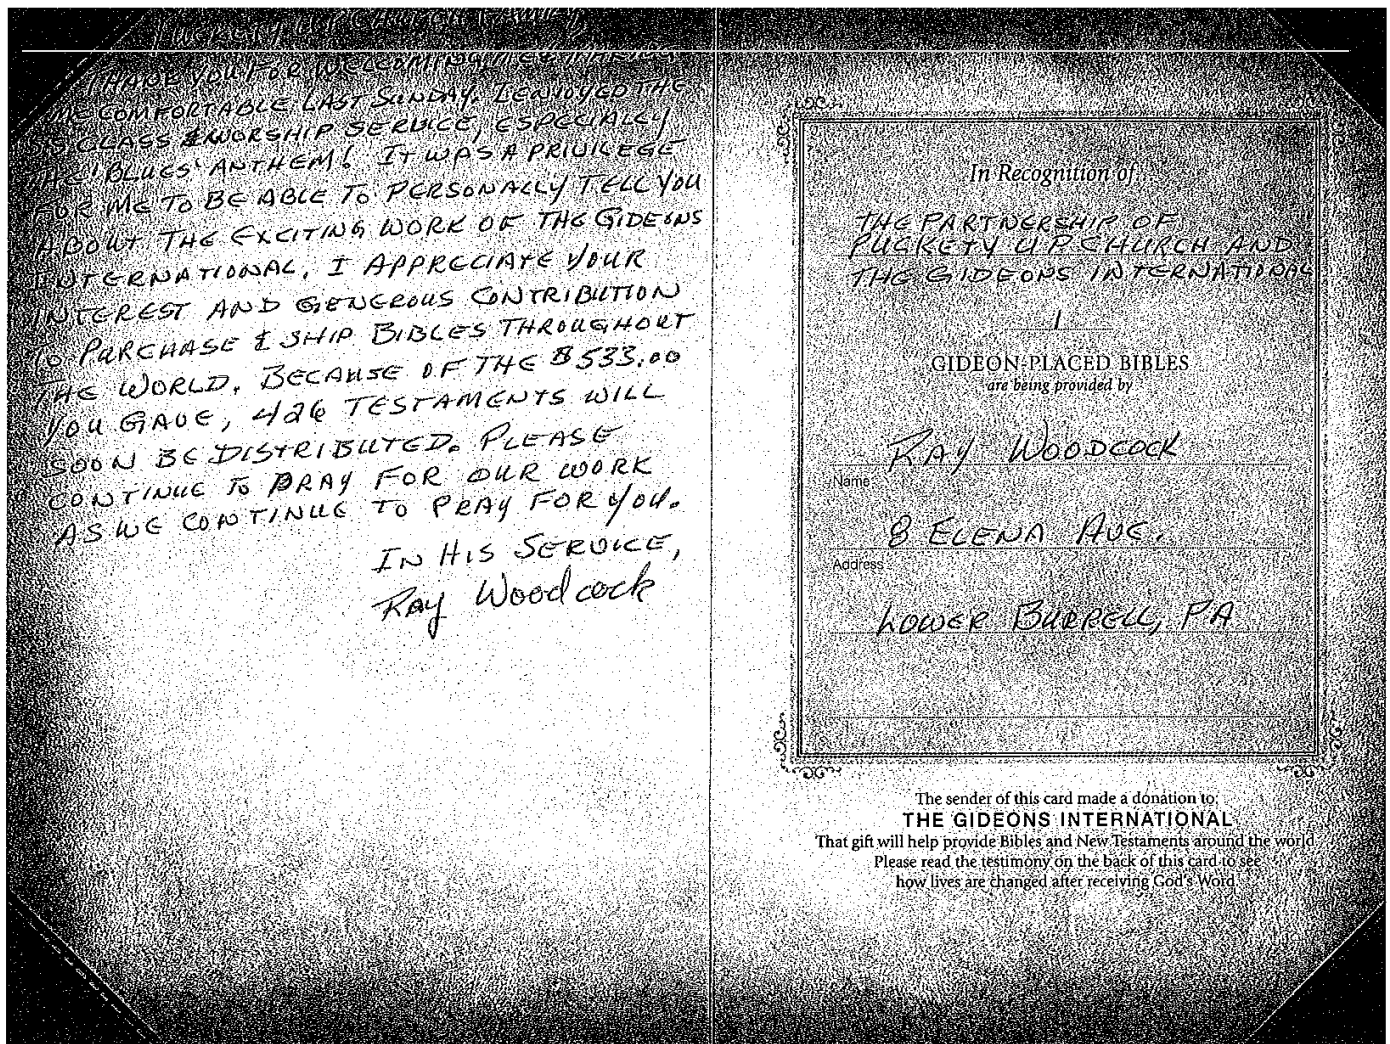 PUCKETY UP CHURCH FAMILY,
THANK YOU FOR WELCOMING ME & MAKING
ME COMFORTABLE LAST SUNDAY. I ENJOYED THE
SS CLASS & WORSHIP SERVICE, ESPECIALLY
THE 'BLUES' ANTHEM! IT WAS A PRIVILEGE
FOR ME TO BE ABLE TO PERSONALLY TELL YOU
ABOUT THE EXCITING WORK OF THE GIDEONS
INTERNATIONAL. I APPRECIATE YOUR
INTEREST AND GENEROUS CONTRIBUTION
TO PURCHASE & SHIP BIBLES THROUGHOUT
THE WORLD. BECAUSE OF THE $533.00
YOU GAVE, 426 TESTAMENTS WILL
SOON BE DISTRIBUTED. PLEASE
CONTINUE TO PRAY FOR OUR WORK
AS WE CONTINUE TO PRAY FOR YOU.
IN HIS SERVICE,
Ray Woodcock
In Recognition of...
THE PARTNERSHIP OF
PUCKETY UP CHURCH AND
THE GIDEONS INTERNATIONAL
1
GIDEON-PLACED BIBLES
are being provided by
RAY WOODCOCK
Name
8 ELENA AVE.
Address
LOWER BURRELL, PA
The sender of this card made a donation to:
THE GIDEONS INTERNATIONAL
That gift will help provide Bibles and New Testaments around the world.
Please read the testimony on the back of this card to see
how lives are changed after receiving God's Word.